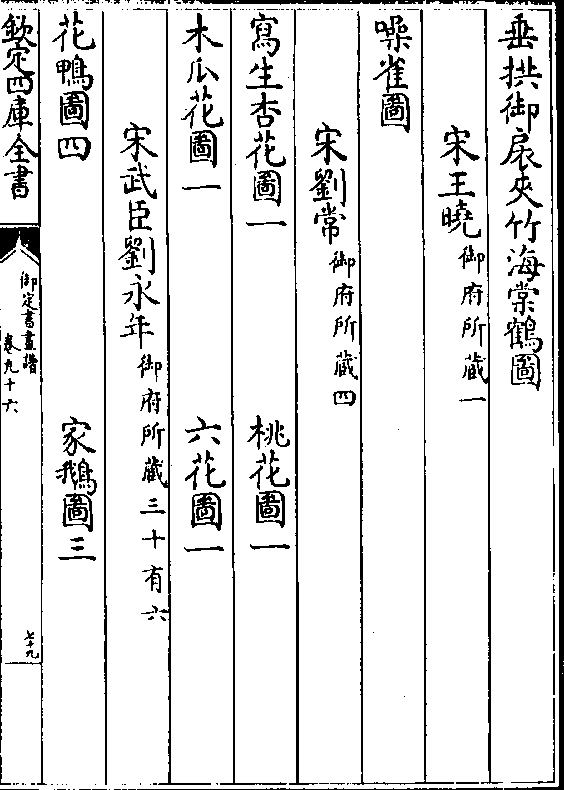 垂拱御扆夾竹海棠鶴圖
宋王曉御府所藏一
噪雀圖
宋劉常御府所藏四
寫生杏花圖一　桃花圖一
木瓜花圖一　六花圖一
宋武臣劉永年御府所藏三十有六
花鴨圖四　家鵝圖三
欽定四庫全書
御定書畫譜
卷九十六
七十九